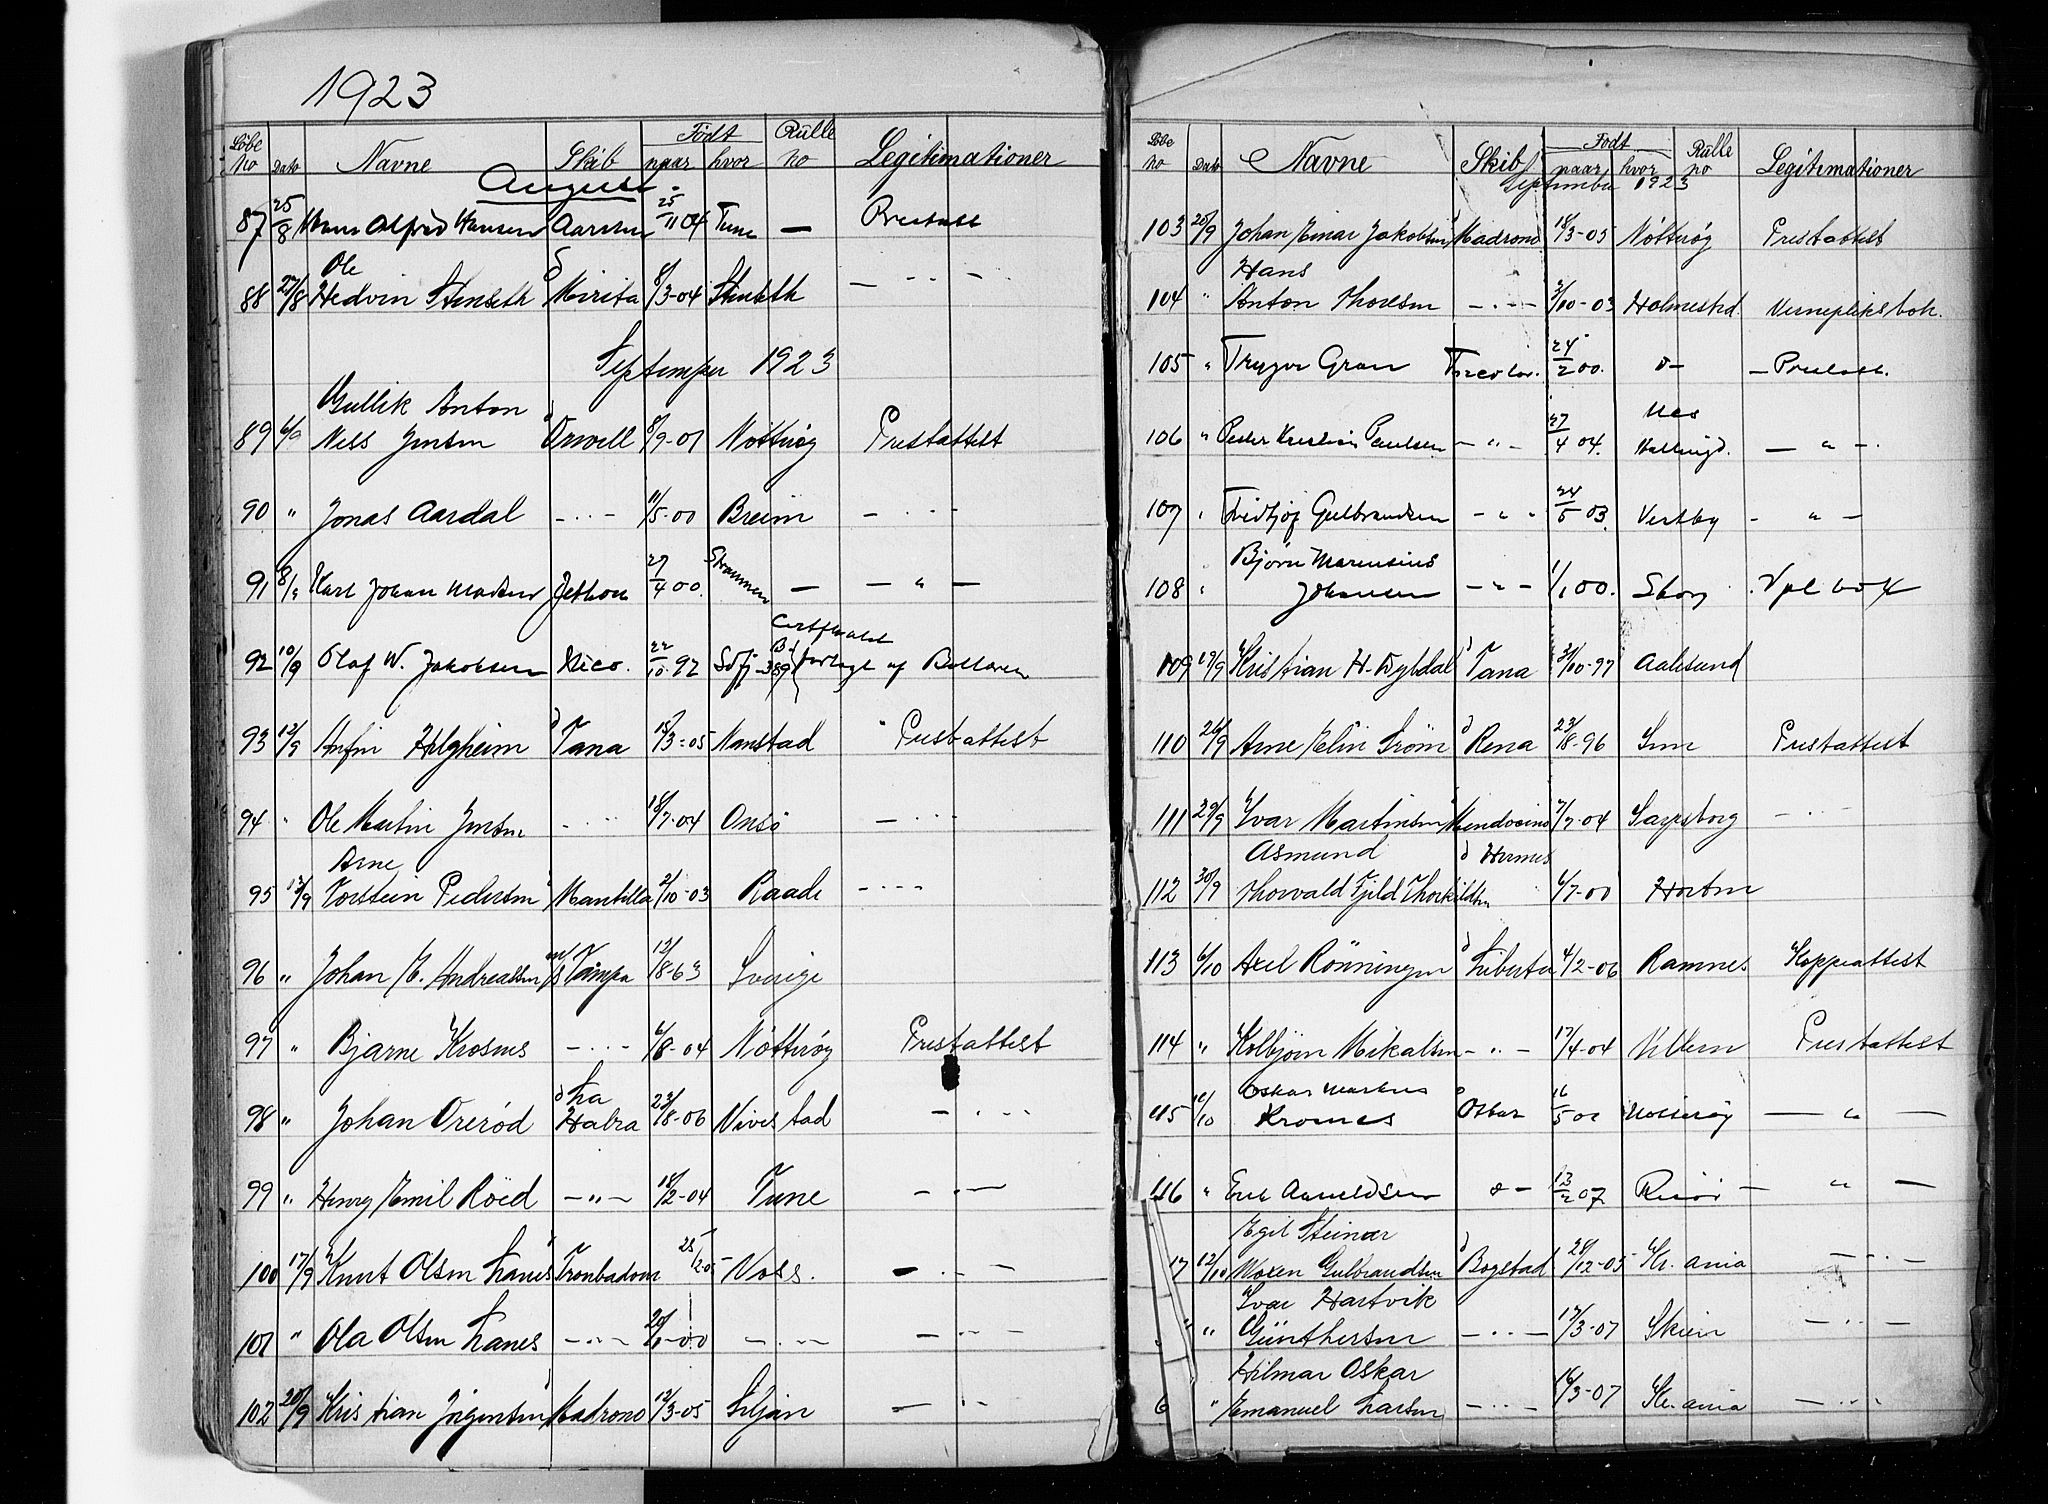 1923
Löbe no Dato Navne Skib Födt naar hvor Rulle no Legitimationer
August
87 25/8 Hans Alfred Hansen 25/11 04 Tune — Prestatt
Ole
88 27/8 Hedvin Stenseth Mirita 8/3-04 Stenseth — " —
September 1923
Gullik Anton
89 6/9 Nels Jensen Orwell 8/9-01 Nötteröy Prestattest
90 " Jonas Aardal — " — 11/5-00 Breim — " —
91 8/9 Karl Johan Madsen 27/4 00. Strømmen — — " —
Certifikatet
92 10/9 Olaf W. Jakobsen Nico. 22/10-92 af
93 12/9 Anfin Helgheim d Tana 18/3-05 Prestattest
94 " Ole Martin Jensen — " — 18/7-04 Onsö — " —
Arne
95 13/9 Torstein Pedersen Mantilla 2/10-03 Raade — " —
96 " Johan E. Andreassen m/s Tampa 12/8-63 Sverige
97 " Bjarne Krosnes — " — 6/8-04 Nötteröy Prestattest
d La
98 " Johan Orerød Habra 23/8-06 — " —
99 " Henry Emil Röed — " — 18/2-04 Tune — " —
100 17/9 Knut Olsen Lanes Troubadour 25/12-0 Voss. — " —
101 " Ola Olsen Lanes — " — — " — — " —
102 20/9 Kristian Jörgensen Madrono 12/3-05 Siljan — " —
Löbe no Dato Navne Skib Födt naar hvor Rulle no Legitimationer
September 1923
103 20/9 Johan Einar Jakobsen Madrono 18/3-05 Nötteröy Prestattest
Hans
104 " Anton Thoresen — " — 3/10-03 Holmestrd. Vernepliktsbok.
105 " Trygve Gran Tricolor. 24/2 00. d- — Prestatt.
Nes
106 " Peder Kristian Paulsen — " — 27/4 04. Hallingd. — " —
107 " Fridtjof Gulbrandsen — " — 24/5 03. Vestby — " —
Bjørn Marensius
108 " Johansen — " — 1/1 00. Sborg Vpl bok
109 19/9 Kristian H. d Tana 31/10-97 Aalesund
110 26/9 Arne Elin Ström d Rena 23/8-96 Prestattest
111 29/9 Ivar Martinsen Mendocino 7/7-04 Sarpsborg — " —
Asmund d Hermes
112 30/9 Thorvald Fjeld Thorkildsen 6/7-00 Horten
113 6/10 Axel Rönningen d Liberta 4/2-06 Ramnes Koppeattest
114 " Kolbjörn Mikalsen — " — 17/4-04 Prestattest
Oskar Markus
115 10/10 Kromes 16/5 Nötteröy — " —
116 " Erik Arnoldsen d- 13/2 07 Risör — " —
Egil Steinar
17 12/10 Moxen Gulbrandsen d Bogstad 28/12-05 Kr. ania — " —
Ivar Hartvik
" Günthersen — " — 17/3-07 Skien — " —
Hilmar Oskar
" Emanuel Larsen — " — 16/3-07 Kr. ania — " —